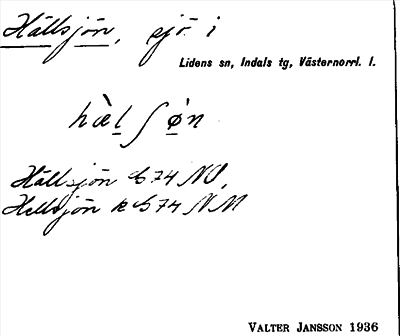 Hällsjön, sjö i
Lidens sn, Indals tg, Västernorrl. l.
hæ̀l ʃ ǿn
Hällsjön 74 NO,
Hellsjön k 74 NM
VALTER JANSSON 1936